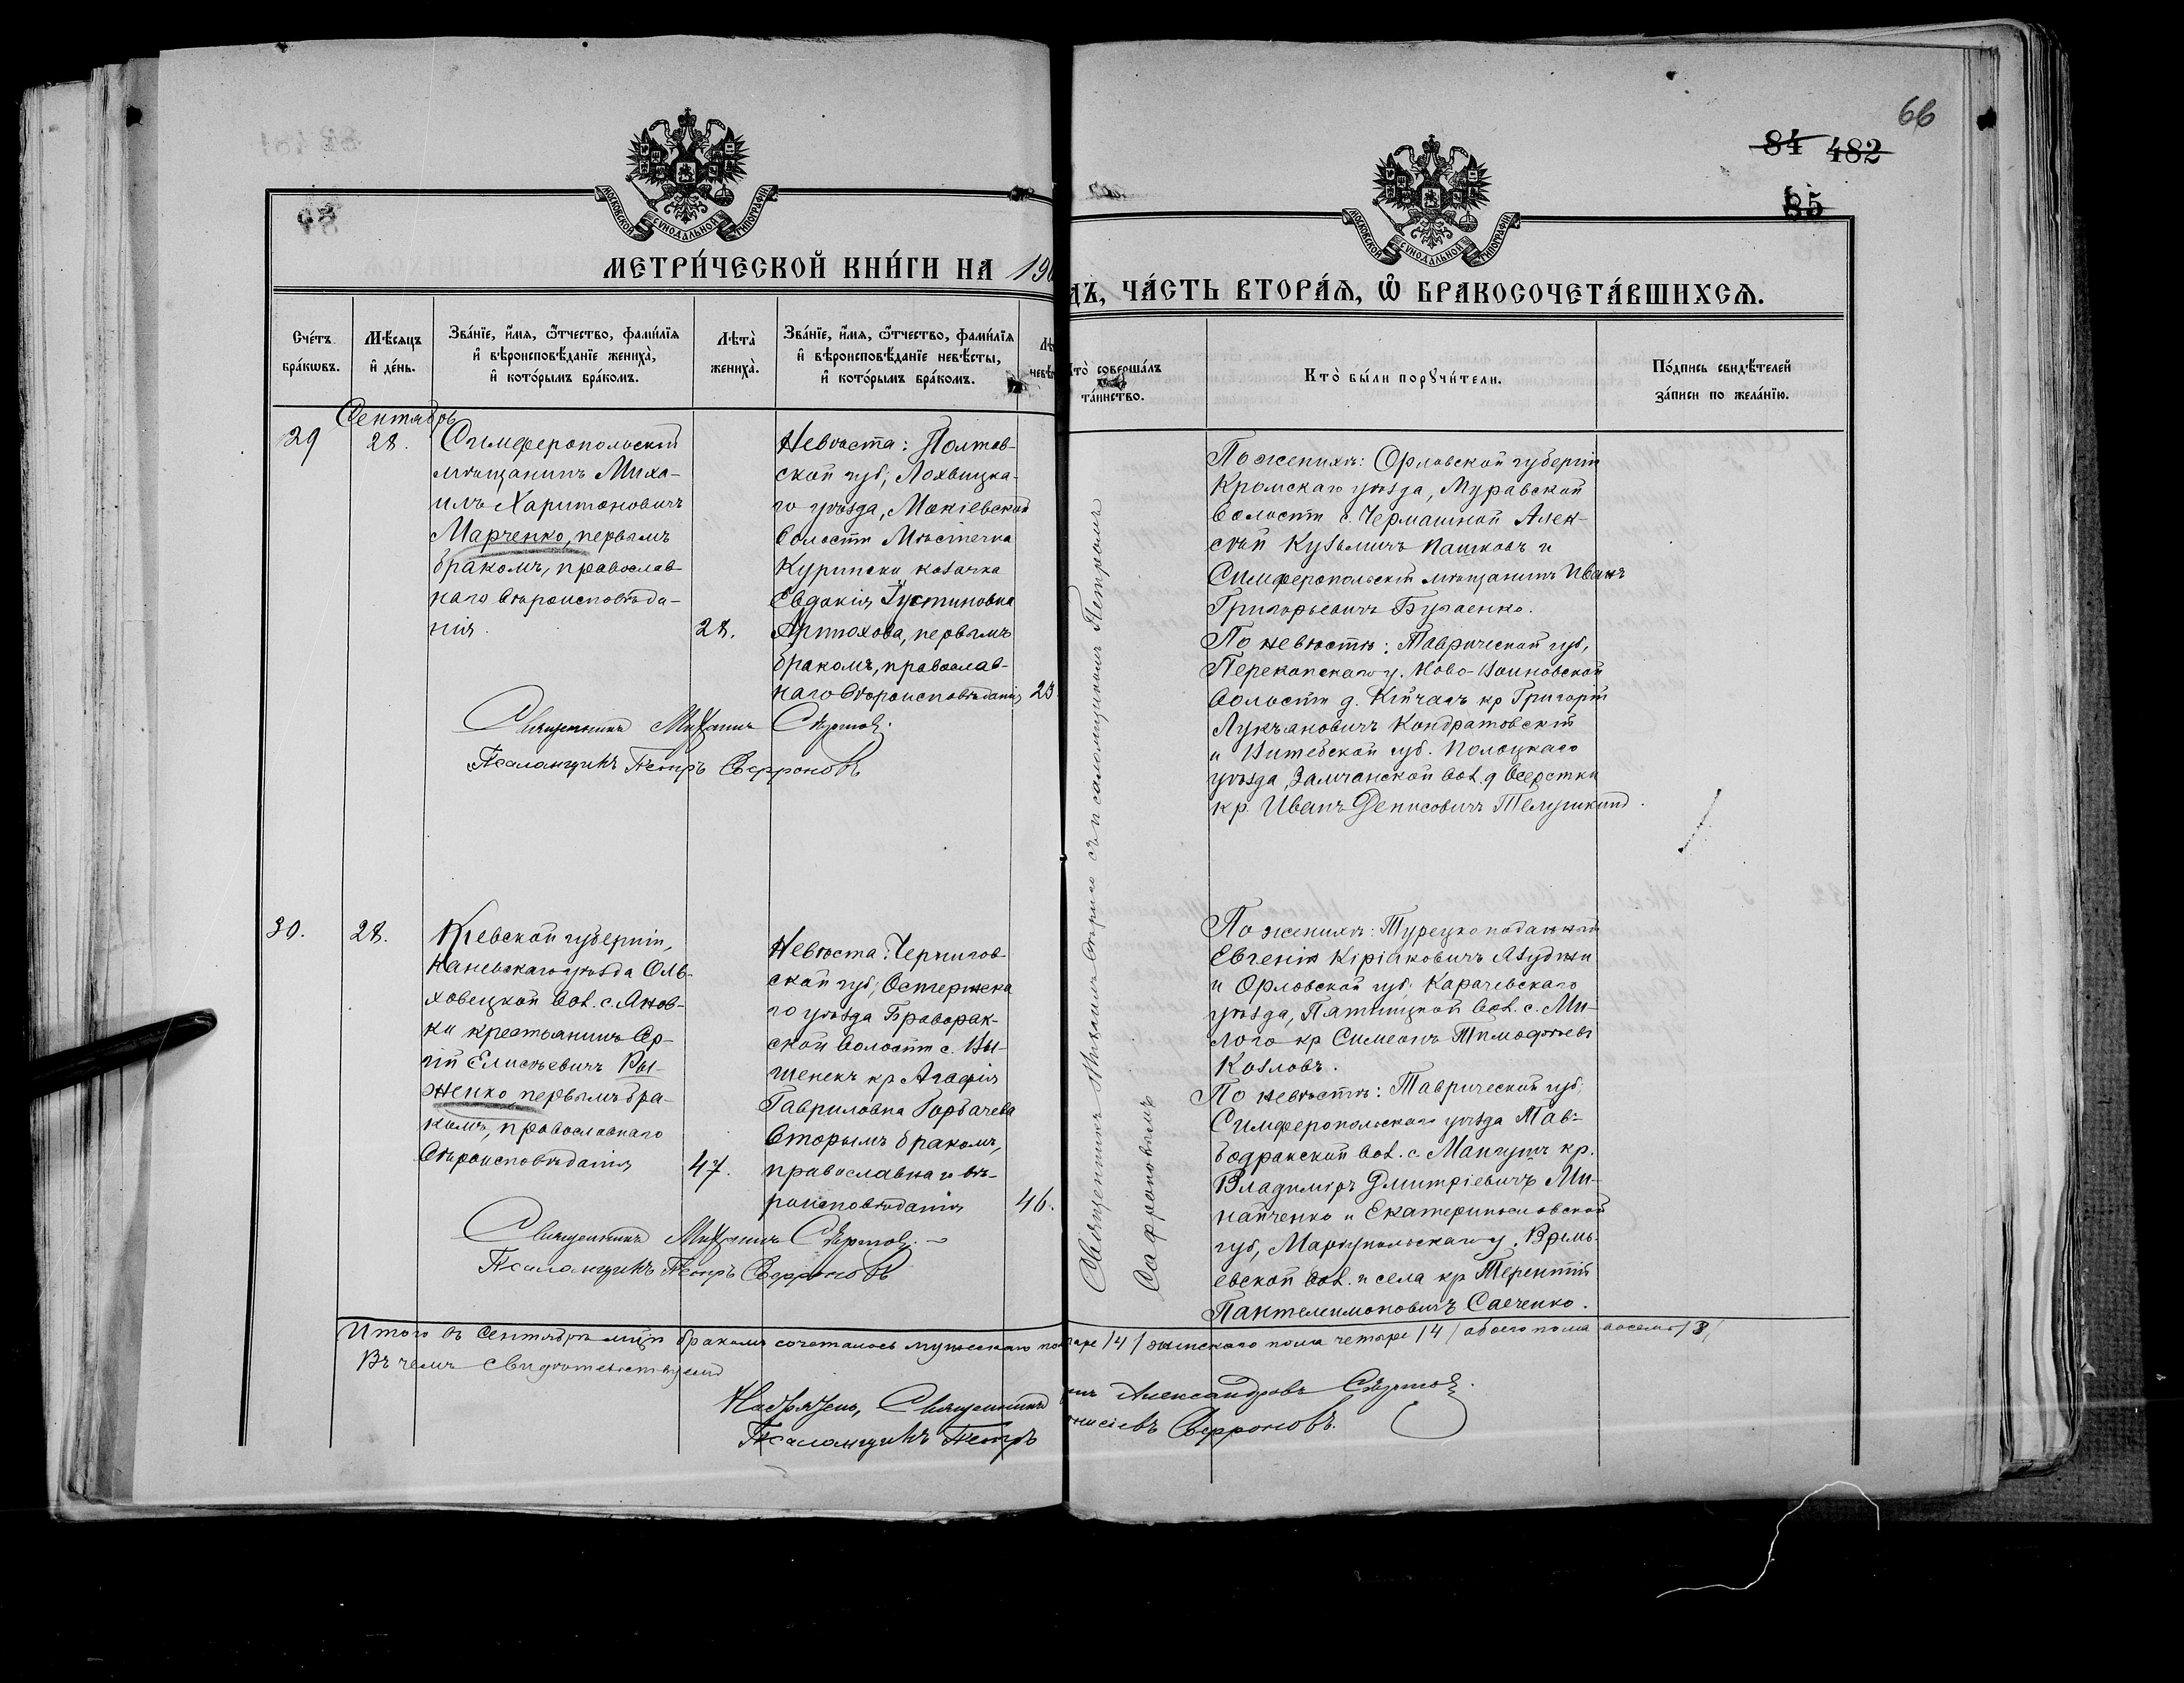 66
84 482
85
МОСКОВСКОЙ СѴНОДАЛЬНОЙ ТИПОГРАФІИ
МОСКОВСКОЙ СѴНОДАЛЬНОЙ ТИПОГРАФІИ
МЕТРИ́ЧЕСКОЙ КНИ́ГИ НА 190
ДЪ, ЧА́СТЬ ВТОРА́Ѧ, Ѽ БРАКОСОЧЕТА́ВШИХСѦ.
Сче́тъ бра́кѡвъ.
Мѣ́сяцъ и҆ де́нь.
Зва́нїе, и҆́мѧ, ѻ҆́тчество, фами́лїѧ
и҆ вѣроисповѣ́данїе жениха̀,
и҆ кото́рымъ бра́комъ.
Лѣта̀ жениха̀.
Зва́нїе, и҆́мѧ, ѻ҆́тчество, фами́лїѧ
и҆ вѣроисповѣ́данїе невѣ́сты,
и҆ кото́рымъ бра́комъ.
то̀ соверша́лъ
та́инство.
Кто̀ бы́ли порꙋчи́тели.
По́дпись свидѣ́телей
за́писи по жела́нїю.
Сентябрь
29
28.
Симферопольскій
мѣщанинъ Миха-
илъ Харитоновичъ
Марченко, первымъ
бракомъ, православ
наго вѣроисповѣда-
нія.
28.
Невѣста: Полтав-
ской губ, Лохвицка-
го уѣзда, Мокіевской
волости Мѣстечка
Куриньки козачка
Евдокія Іустиновна
Артюхова, первымъ
бракомъ, православ-
наго вѣроисповѣданія
23
Священникъ Михаилъ
Псаломщикъ Петръ Сафроновъ
По женихѣ: Орловской губерніи
Кромскаго уѣзда, Муравской
волости с. Чермашной Алек-
сѣй Кузьмичъ Пашковъ и
Симферопольскій мѣщанинъ Иванъ
Григорьевичъ Бугаенко.
По невѣстѣ: Таврической губ,
Перекопскаго у. Ново-Воиновской
волости д. Кіпчакъ кр Григорій
Лукъяновичъ Кондратовскій
и Витебской губ. Полоцкаго
уѣзда, вол. д
кр. Иванъ Денисовичъ Телушкинъ.
30.
28.
Кіевской губерніи,
Каневскаго уѣзда Оль-
ховецкой вол. с. Янов-
ки крестьянинъ Сер-
гій Елисѣевичъ Вы-
женко, первымъ бра-
комъ, православнаго
вѣроисповѣданія
47.
Невѣста: Чернигов-
ской губ, Остерска
го уѣзда
ской волости с. Вы-
шенекъ кр Агафія
Гавриловна Горбачева
вторымъ бракомъ,
православнаго вѣ-
роисповѣданія
46.
Священникъ Михаилъ
Псаломщикъ Петръ Сафроновъ
По женихѣ: Турецко поданный
Евгеній Киріаковичъ Азуджи
и Орловской губ, Карачевскаго
уѣзда, Пятницкой вол. с. Ми-
лого кр Симеонъ Тимофѣевъ
Козловъ.
По невѣстѣ: Таврической губ.
Симферопольскаго уѣзда Тав-
бодракской вол. с. Мангушъ кр.
Владиміръ Дмитріевичъ Ми-
найченко и Екатеринославской
губ, Маріупольскаго у. Времь-
евской вол. и села кр Терентій
Пантелеимоновичъ Савченко.
Священникъ съ псаломщикомъ Петромъ
Сафроновымъ
Итого въ Сентябрѣ мцѣ бракомъ сочеталось мужескаго по
аре /4/ женскаго пола четыре /4/ обоего пола восемь /8/
Въ чемъ свидѣтельствуемъ
Священникъ
Александровъ
Псаломщикъ Петръ
Сафроновъ.